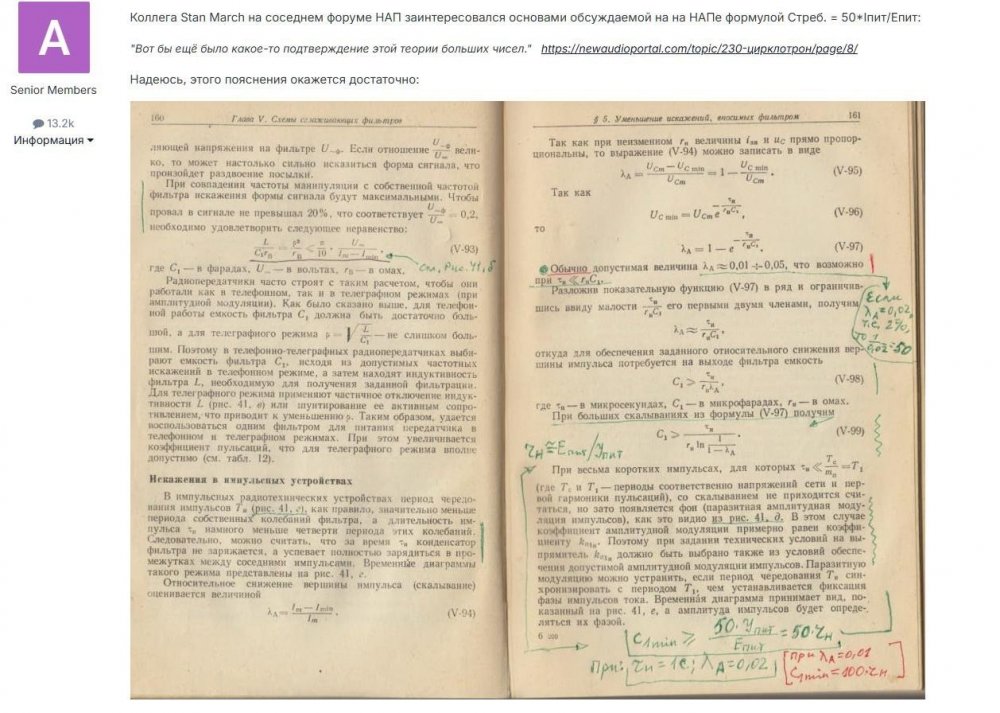 A
Senior Members
13.2k
Информация
Коллега Stan March на соседнем форуме НАП заинтересовался основами обсуждаемой на на НАПе формулой Cтреб. = 50*Iпит/Eпит:
"Вот бы ещё было какое-то подтверждение этой теории больших чисел." https://newaudioportal.com/topic/230-цирклотрон/page/8/
Надеюсь, этого пояснения окажется достаточно:
160 Глава V. Схемы сглаживающих фильтров
ляющей напряжения на фильтре U₋ф. Если отношение U₋ф/U₌ вели-
ко, то может настолько сильно исказиться форма сигнала, что
произойдет раздвоение посылки.
При совпадении частоты манипуляции с собственной частотой
фильтра искажения формы сигнала будут максимальными. Чтобы
провал в сигнале не превышал 20%, что соответствует = 0,2,
необходимо удовлетворить следующее неравенство:
(V-93)
См. Рис. 41, б
где C₁ — в фарадах, U₌ — в вольтах, rв — в омах.
Радиопередатчики часто строят с таким расчетом, чтобы они
работали как в телефонном, так и в телеграфном режимах (при
амплитудной модуляции). Как было сказано выше, для телефон-
ной работы емкость фильтра C₁ должна быть достаточно боль-
шой, а для телеграфного режима ρ = √(L/C₁) — не слишком боль-
шим. Поэтому в телефонно-телеграфных радиопередатчиках выби-
рают емкость фильтра C₁, исходя из допустимых частотных
искажений в телефонном режиме, а затем находят индуктивность
фильтра L, необходимую для получения заданной фильтрации.
Для телеграфного режима применяют частичное отключение индук-
тивности L (рис. 41, в) или шунтирование ее активным сопро-
тивлением, что приводит к уменьшению ρ. Таким образом, удается
воспользоваться одним фильтром для питания передатчика в
телефонном и телеграфном режимах. При этом увеличивается
коэффициент пульсаций, что для телеграфного режима вполне
допустимо (см. табл. 12).
Искажения в импульсных устройствах
В импульсных радиотехнических устройствах период чередо-
вания импульсов Tи (рис. 41, г), как правило, значительно меньше
периода собственных колебаний фильтра, а длительность им-
пульса τи намного меньше четверти периода этих колебаний.
Следовательно, можно считать, что за время τи конденсатор
фильтра не заряжается, а успевает полностью зарядиться в про-
межутках между соседними импульсами. Временные диаграммы
такого режима представлены на рис. 41, г.
Относительное снижение вершины импульса (скалывание)
оценивается величиной
λA = (Im — Im min)/Im. (V-94)
§ 5. Уменьшение искажений, вносимых фильтром 161
Так как при неизменном rн величины iан и uC прямо пропор-
циональны, то выражение (V-94) можно записать в виде
λA = (UCm — UC min)/UCm = 1 — UC min/UCm. (V-95)
Так как
UC min = UCm e^(−τи/rнC₁), (V-96)
то
λA = 1 — e^(−τи/rнC₁). (V-97)
Обычно допустимая величина λA ≈ 0,01 ÷ 0,05, что возможно
при τи ≪ rнC₁.
Разложив показательную функцию (V-97) в ряд и ограничив-
шись ввиду малости τи/rнC₁ его первыми двумя членами, получим
λA ≈ τи/rнC₁,
Если
λA=0,02,
т.е. 2%,
то 1/0,02=50
откуда для обеспечения заданного относительного снижения вер-
шины импульса потребуется на выходе фильтра емкость
C₁ > τи/rнλA, (V-98)
где τи — в микросекундах, C₁ — в микрофарадах, rн — в омах.
При больших скалываниях из формулы (V-97) получим
C₁ > τи/(rн ln 1/(1 — λA)). (V-99)
rн ≅ Eпит/Iпит
При весьма коротких импульсах, для которых τи ≪ Tс/mп = T₁
(где Tс и T₁ — периоды соответственно напряжений сети и пер-
вой гармоники пульсаций), со скалыванием не приходится счи-
таться, но зато появляется фон (паразитная амплитудная моду-
ляция импульсов), как это видно из рис. 41, д. В этом случае
коэффициент амплитудной модуляции примерно равен коэффи-
циенту. Поэтому при задании технических условий на вы-
прямитель должно быть выбрано также из условий обеспе-
чения допустимой амплитудной модуляции импульсов. Паразитную
модуляцию можно устранить, если период чередования Tи син-
хронизировать с периодом T₁, чем устанавливается фиксация
фазы импульсов тока. Временная диаграмма принимает вид, по-
казанный на рис. 41, е, а амплитуда импульсов будет опреде-
ляться их фазой.
6
C₁min ≥ 50·Iпит/Eпит = 50·τн,
при: τн = 1с; λA = 0,02
при λA=0,01
C₁min = 100·τн